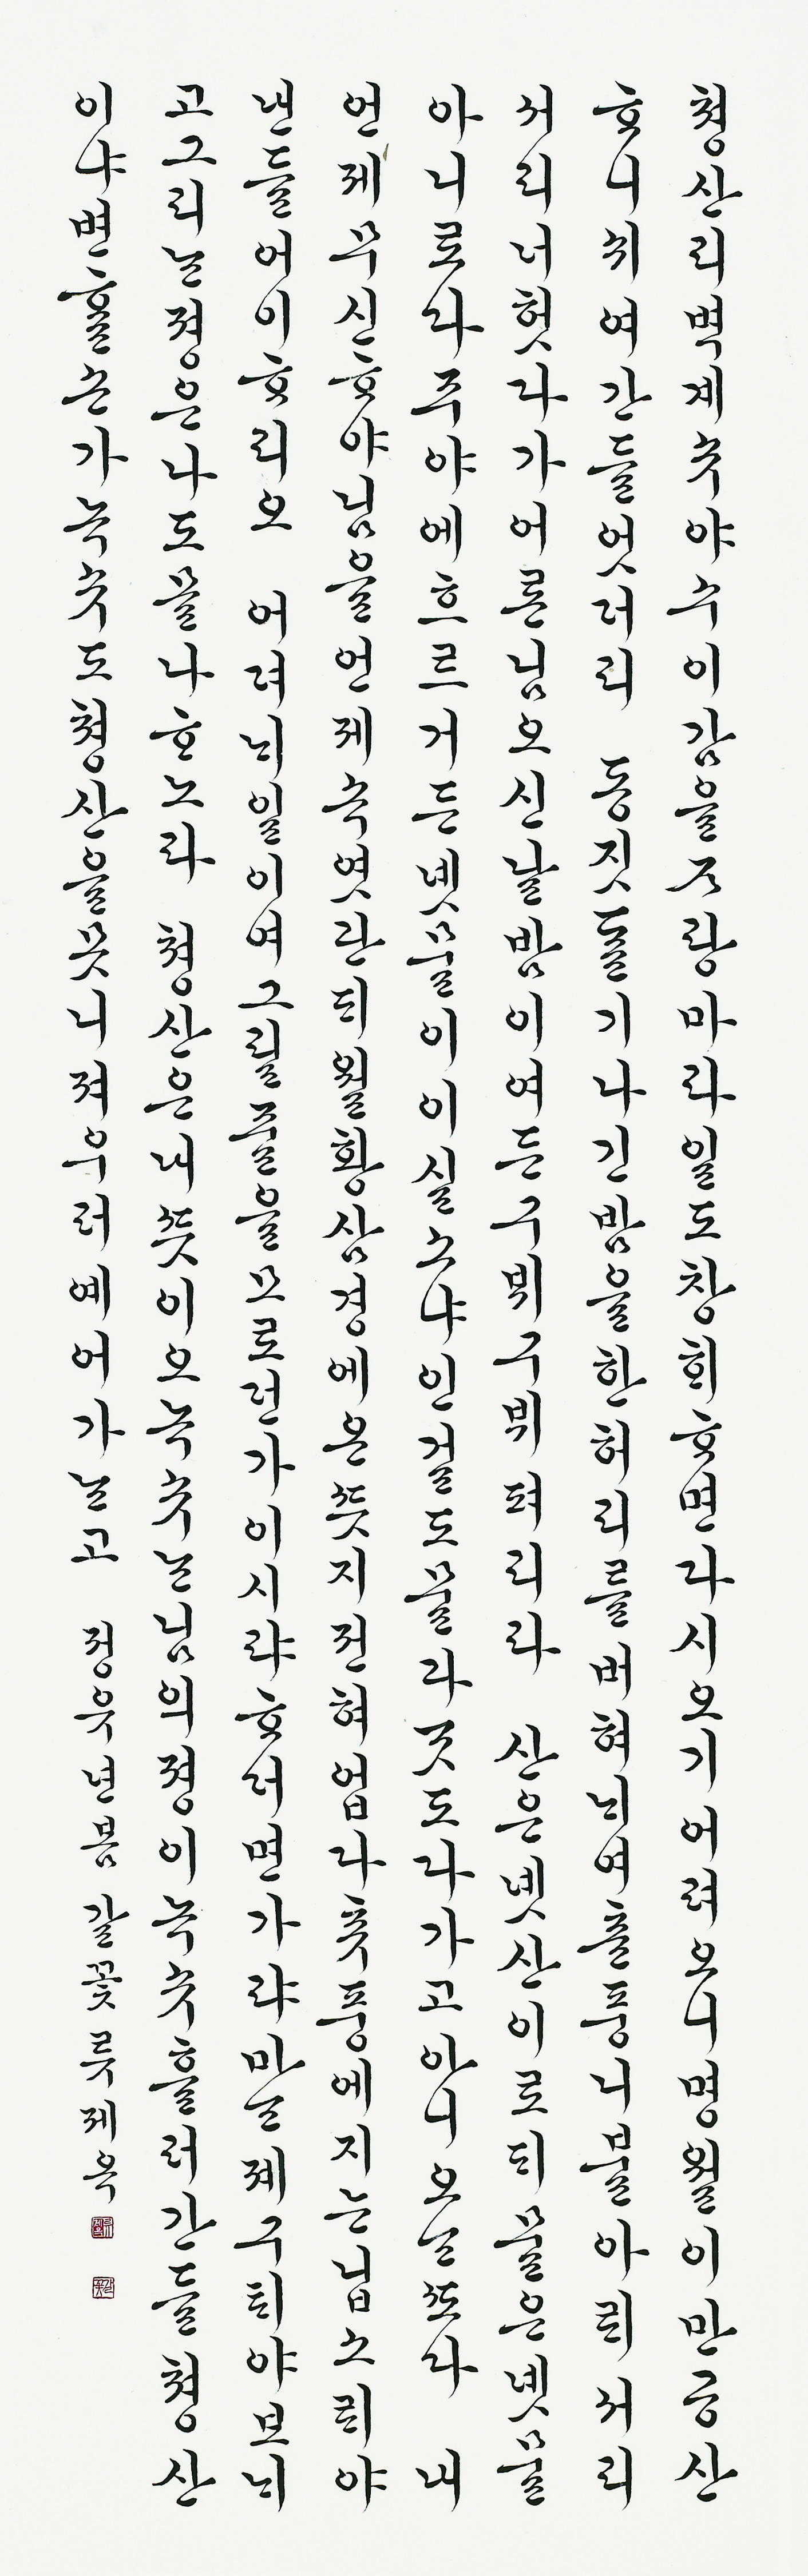 쳥산리벽계슈야수이감을ᄌᆞ랑마라일도창ᄒᆡᄒᆞ면다시오기어려오니명월이만공산
ᄒᆞ니쉬여간들엇더리 동짓ᄃᆞᆯ기나긴밤을한허리를버혀ᄂᆡ여츈풍니불아ᄅᆡ서리
서리너헛다가어론님오신날밤이여든구뷔구뷔펴리라 산은녯산이로ᄃᆡ물은녯물
아니로다주야에흐르거든녯물이이실소냐인걸도물과ᄀᆞᆺ도다가고아니오ᄂᆞᆫᄯᅩ다 내
언제무신ᄒᆞ야님을언제속엿관ᄃᆡ월황삼경에온ᄯᅳᆺ지전혀업다츄풍에지는닙소ᄅᆡ야
낸들어이ᄒᆞ리오 어져ᄂᆡ일이여그릴줄을모로던가이시랴ᄒᆞ더면가랴마ᄂᆞᆫ졔구ᄐᆡ야보ᄂᆡ
고그리ᄂᆞᆫ졍은나도몰나ᄒᆞ노라 쳥산은내ᄯᅳᆺ이오녹슈ᄂᆞᆫ님의졍이녹슈흘러간들쳥산
이야변ᄒᆞᆯ손가녹슈도쳥산을못니져우러예어가ᄂᆞᆫ고 정유년봄 갈꽃 류제옥